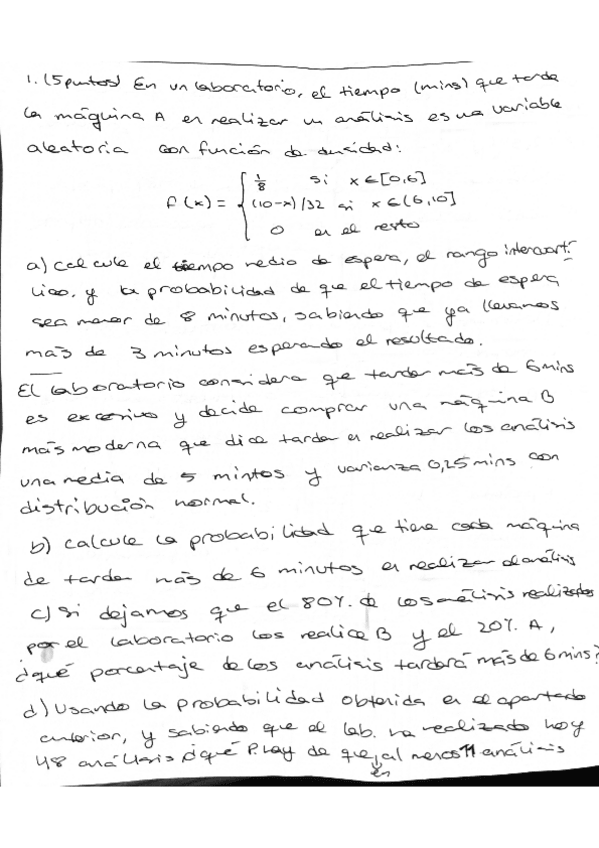 1. (5 puntos) En un laboratorio, el tiempo (mins) que tarda
la máquina A en realizar un análisis es una variable
aleatoria con función de densidad:
f(x) = { 1/8 si x ∈ [0,6]
(10-x)/32 si x ∈ (6,10]
0 en el resto
a) calcule el tiempo medio de espera, el rango intercuartí-
lico, y la probabilidad de que el tiempo de espera
sea menor de 8 minutos, sabiendo que ya llevamos
más de 3 minutos esperando el resultado.
El laboratorio considera que tardar más de 6 mins
es excesivo y decide comprar una máquina B
más moderna que dice tardar en realizar los análisis
una media de 5 mintos y varianza 0,25 mins con
distribución normal.
b) calcule la probabilidad que tiene cada máquina
de tardar más de 6 minutos en realizar el análisis
c) Si dejamos que el 80%. de los análisis realizados
por el laboratorio los realice B y el 20%. A,
¿qué porcentaje de los análisis tardará más de 6 mins?
d) Usando la probabilidad obtenida en el apartado
anterior, y sabiendo que el lab. ha realizado hoy
48 análisis ¿qué P. hay de que, en al menos 11 análisis